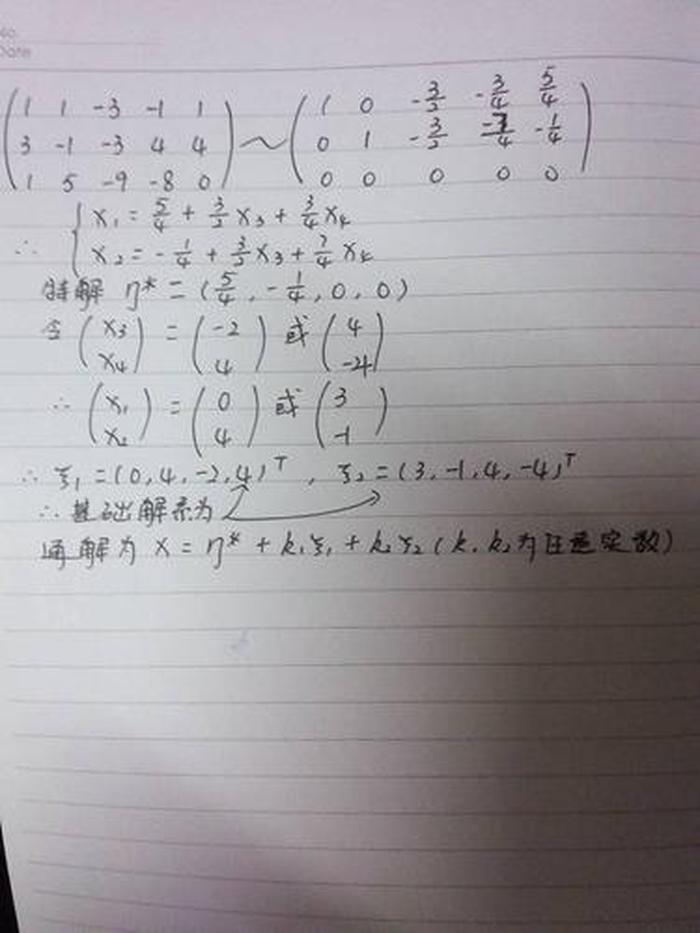 No.
Date
( 1 1 -3 -1 1 ; 3 -1 -3 4 4 ; 1 5 -9 -8 0 ) ~ ( 1 0 -3/2 -3/4 5/4 ; 0 1 -3/2 -7/4 -1/4 ; 0 0 0 0 0 )
∴ { x₁ = 5/4 + 3/2 x₃ + 3/4 x₄
x₂ = -1/4 + 3/2 x₃ + 7/4 x₄
特解 η* = (5/4, -1/4, 0, 0)
令 (x₃ x₄) = (-2 4) 或 (4 -4)
∴ (x₁ x₂) = (0 4) 或 (3 -1)
∴ ξ₁ = (0, 4, -2, 4)ᵀ , ξ₂ = (3, -1, 4, -4)ᵀ
∴ 基础解系为
通解为 x = η* + k₁ξ₁ + k₂ξ₂ (k₁ k₂为任意实数)